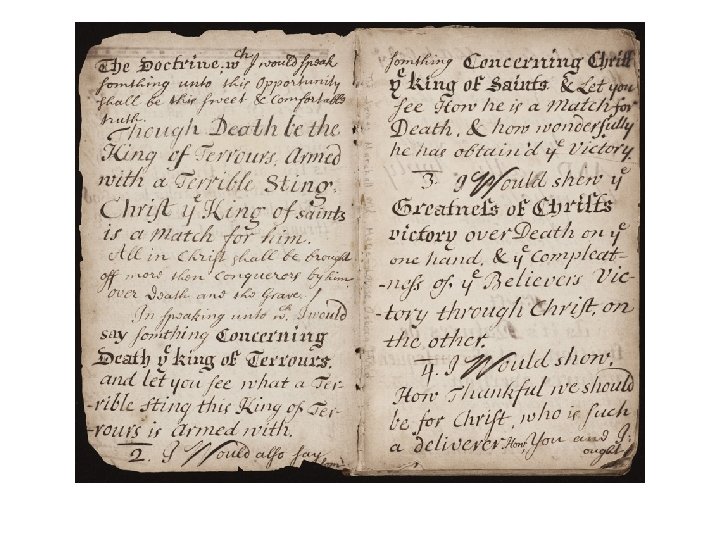 The Doctrine, wch I would speak
somthing unto this Opportunity
shall be this sweet & Comfortable
truth.
Though Death be the
King of Terrours, Armed
with a Terrible Sting.
Christ ye King of saints
is a Match for him.
All in Christ shall be brought
off more then Conquerors by him
over Death and the Grave.
In speaking unto wch I would
say somthing Concerning
Death ye king of Terrours.
and let you see what a Ter-
-rible Sting this King of Ter-
-rours is armed with.
2. I Would also say
som-
somthing Concerning Christ
ye King of Saints & Let you
see How he is a Match for
Death, & how wonderfully
he has obtain'd ye Victory.
3. I Would shew ye
Greatness of Christs
victory over Death on ye
one hand, & ye Compleat-
-ness of ye Believers Vic-
-tory through Christ, on
the other.
4. I Would show,
How Thankful we should
be for Christ, who is such
a deliverer. How You and I
ought